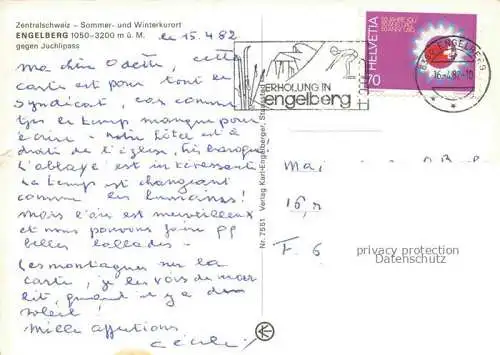 Zentralschweiz – Sommer- und Winterkurort
ENGELBERG 1050–3200 m ü. M.
gegen Juchlipass
le 15.4.82
Ma chère Odette, cette
carte est pour tout le
syndicat, car comme
le temps manque pour
écrire - notre hôtel est à
droite de l'église, très baroque
L'abbaye est intéressante
Le temps est changeant
comme en
mais l'air est merveilleux
et nous pouvons faire qq
belles ballades -
Les montagnes sur la
carte, je les vois de mon
lit, quand il y a du
soleil!
Mille affections
Cécile
Nr. 7551 Verlag Karl Engelberger, Stansstad
ERHOLUNG IN
engelberg
HELVETIA
70
ENGELBERG
16.-4.82-10
16,
F. 6
privacy protection
Datenschutz